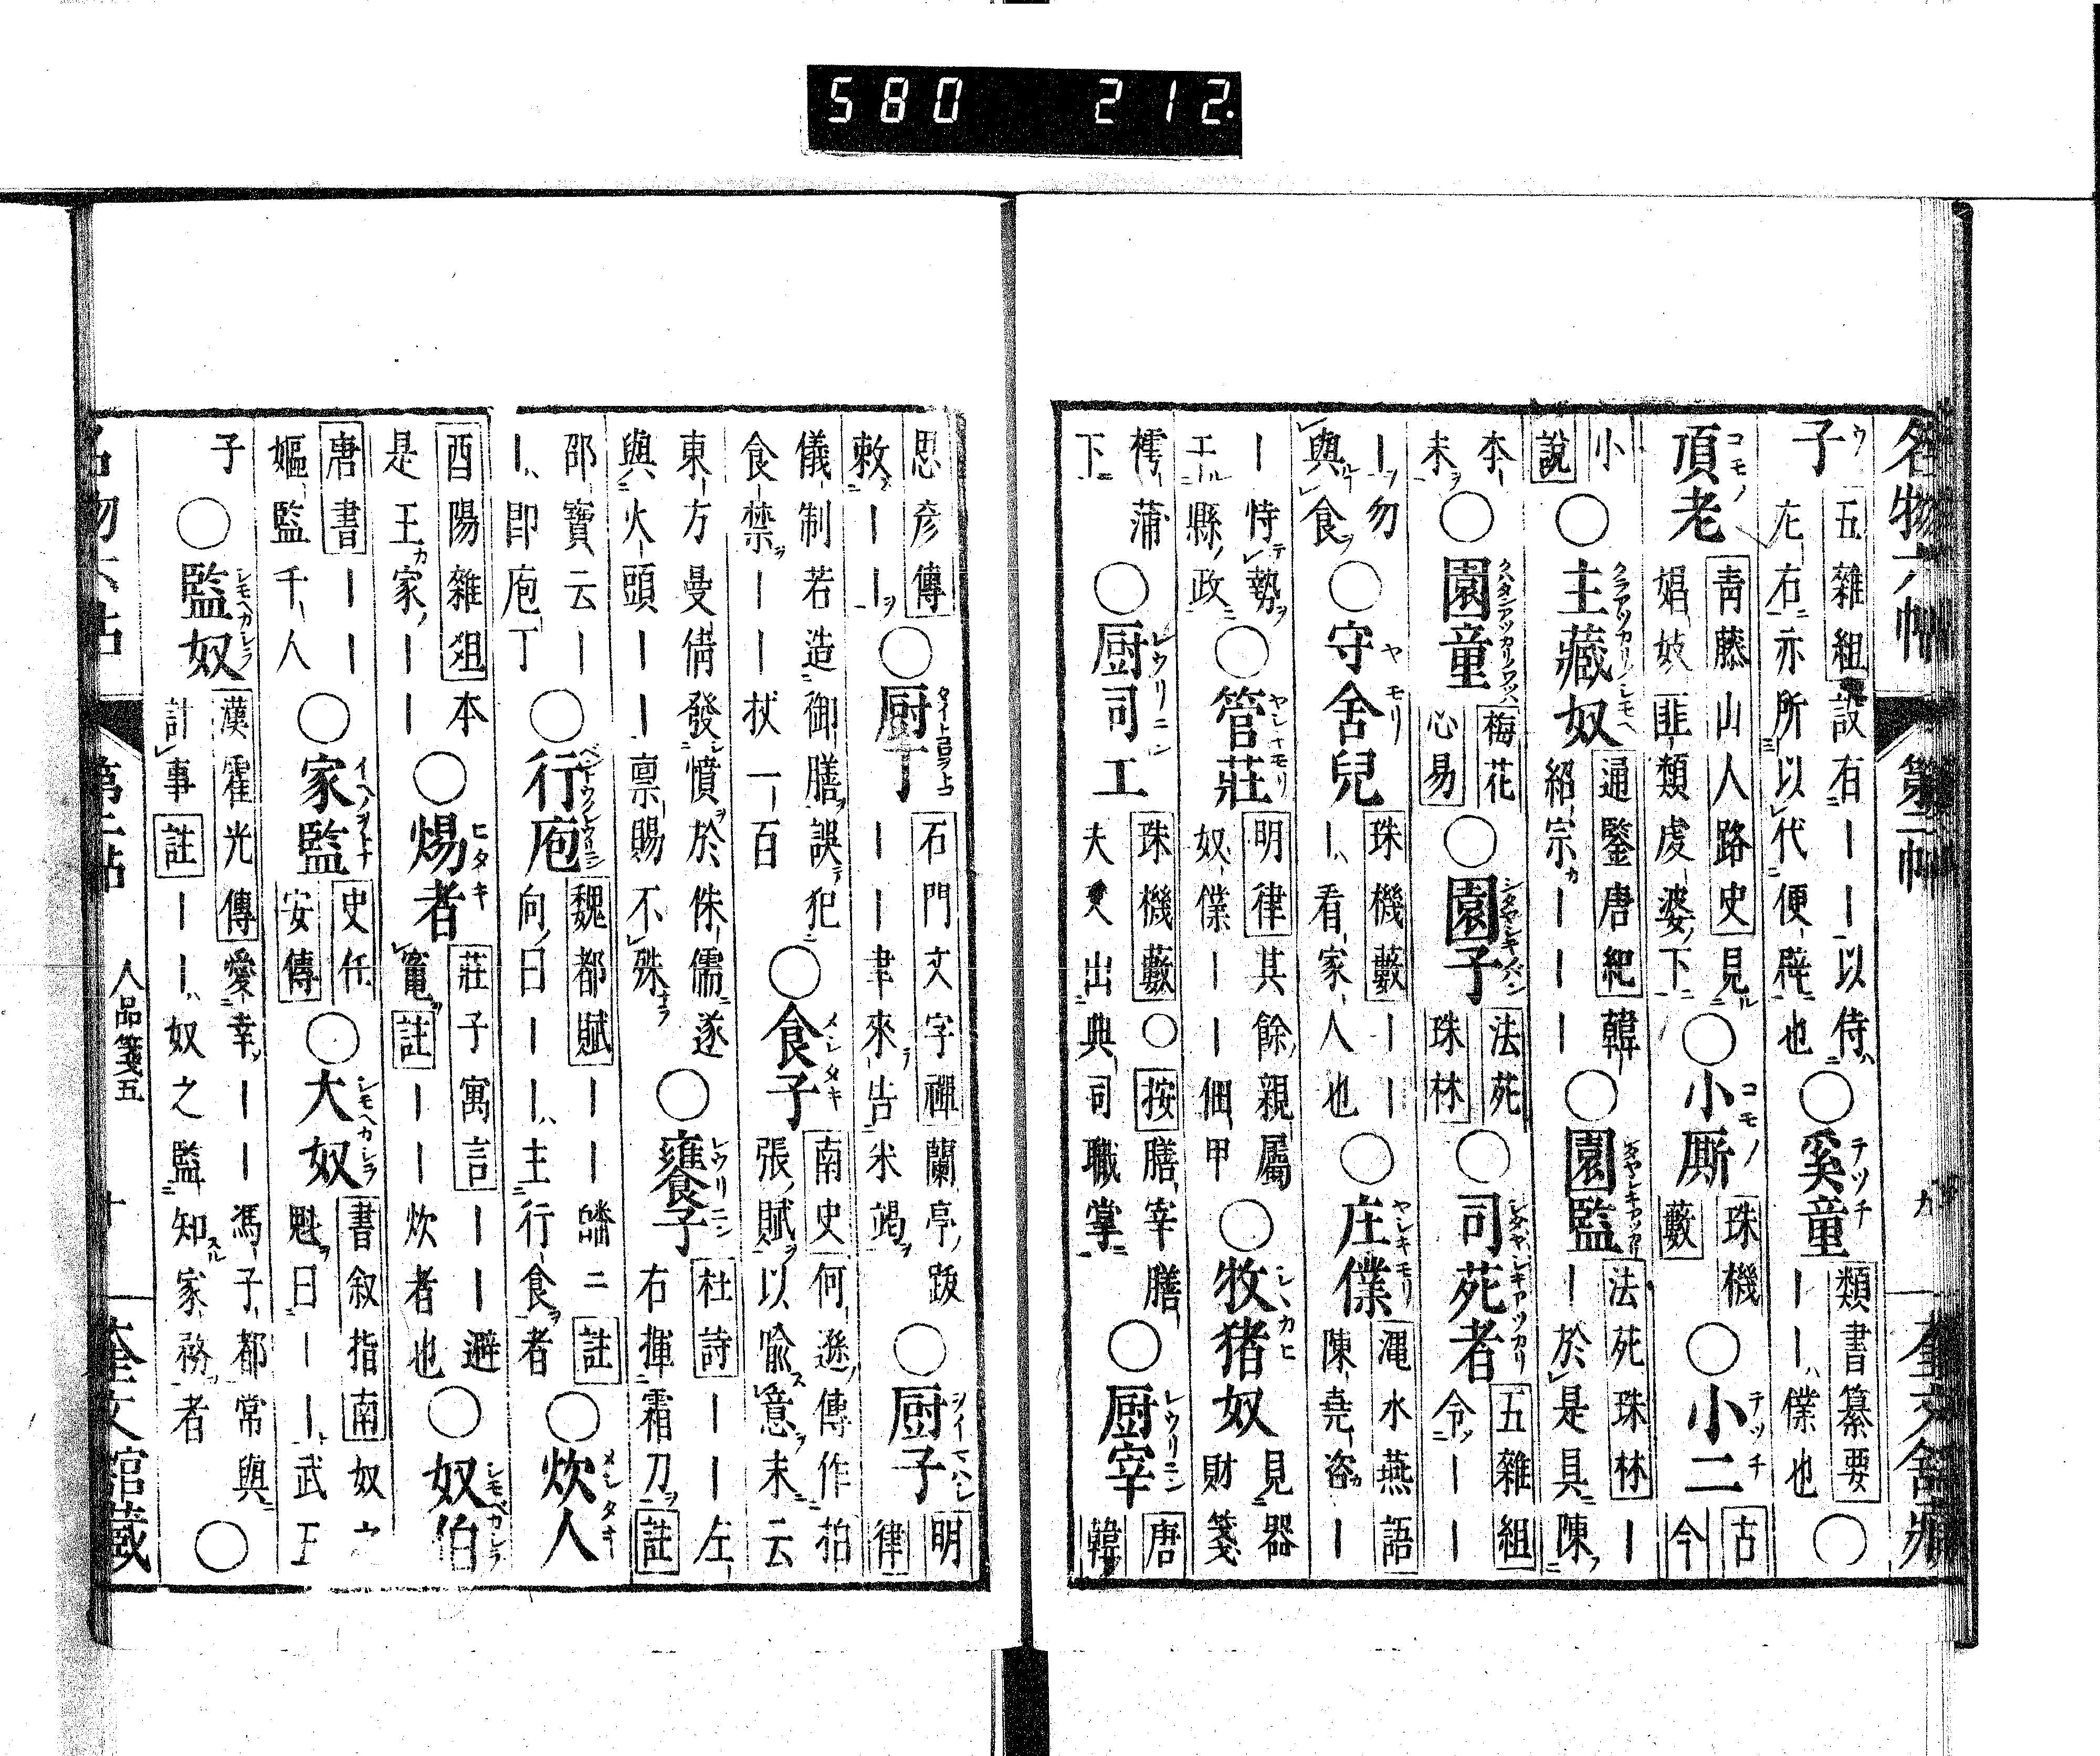 580 212.
名物六帖 第二帖 九 奎文館藏
子 五雜組 設有｜｜以侍
左右亦所以代便辟也 ○奚童 類書纂要
｜｜僕也 ○
頂老 青藤山人路史 見
娼妓 類虔婆下 ○小厮 珠機
藪 ○小二 古
今
小
說 ○主藏奴 通鑒唐紀 韓
紹宗｜｜｜ ○園監 法苑珠林 ｜
｜於是具陳
本
末 ○園童 梅花
心易 ○園子 法苑
珠林 ○司苑者 五雜組
令｜｜
｜勿
與食 ○守舍兒 珠機藪 ｜｜
｜看家人也 ○庄僕 澠水燕語
陳堯咨｜
｜恃勢
縣政 ○管莊 明律 其餘親屬
奴僕｜｜佃甲 ○牧猪奴 見器
財箋
樗蒲
下 ○厨司工 珠機藪 ○按 膳宰膳
夫 出典司職掌 ○厨宰 唐
韓
思彦傳
敕｜｜ ○厨丁 石門文字禪 蘭亭跋
｜｜聿來告米竭 ○厨子 明
律
儀制若造御膳誤犯
食禁｜｜杖一百 ○食子 南史 何遜傳作拍
張賦以喻意末云
東方曼倩發憤於侏儒遂
與火頭｜｜禀賜不殊 ○饔子 杜詩 ｜｜左
右揮霜刀 註
邵寶云｜
｜即庖丁 ○行庖 魏都賦 ｜｜皤二 註
向曰｜｜主行食者 ○炊人
酉陽雜俎 本
是王家｜｜ ○煬者 莊子寓言 ｜｜避
竈 註 ｜｜炊者也 ○奴伯
唐書 ｜｜
嫗監千人 ○家監 史任
安傳 ○大奴 書叙指南 奴之
魁曰｜｜武王
子 ○監奴 漢霍光傳 愛幸｜｜馮子都常與
計事 註 ｜｜奴之監知家務者 ○
名物六帖 第二帖 人品箋五 十 奎文館藏